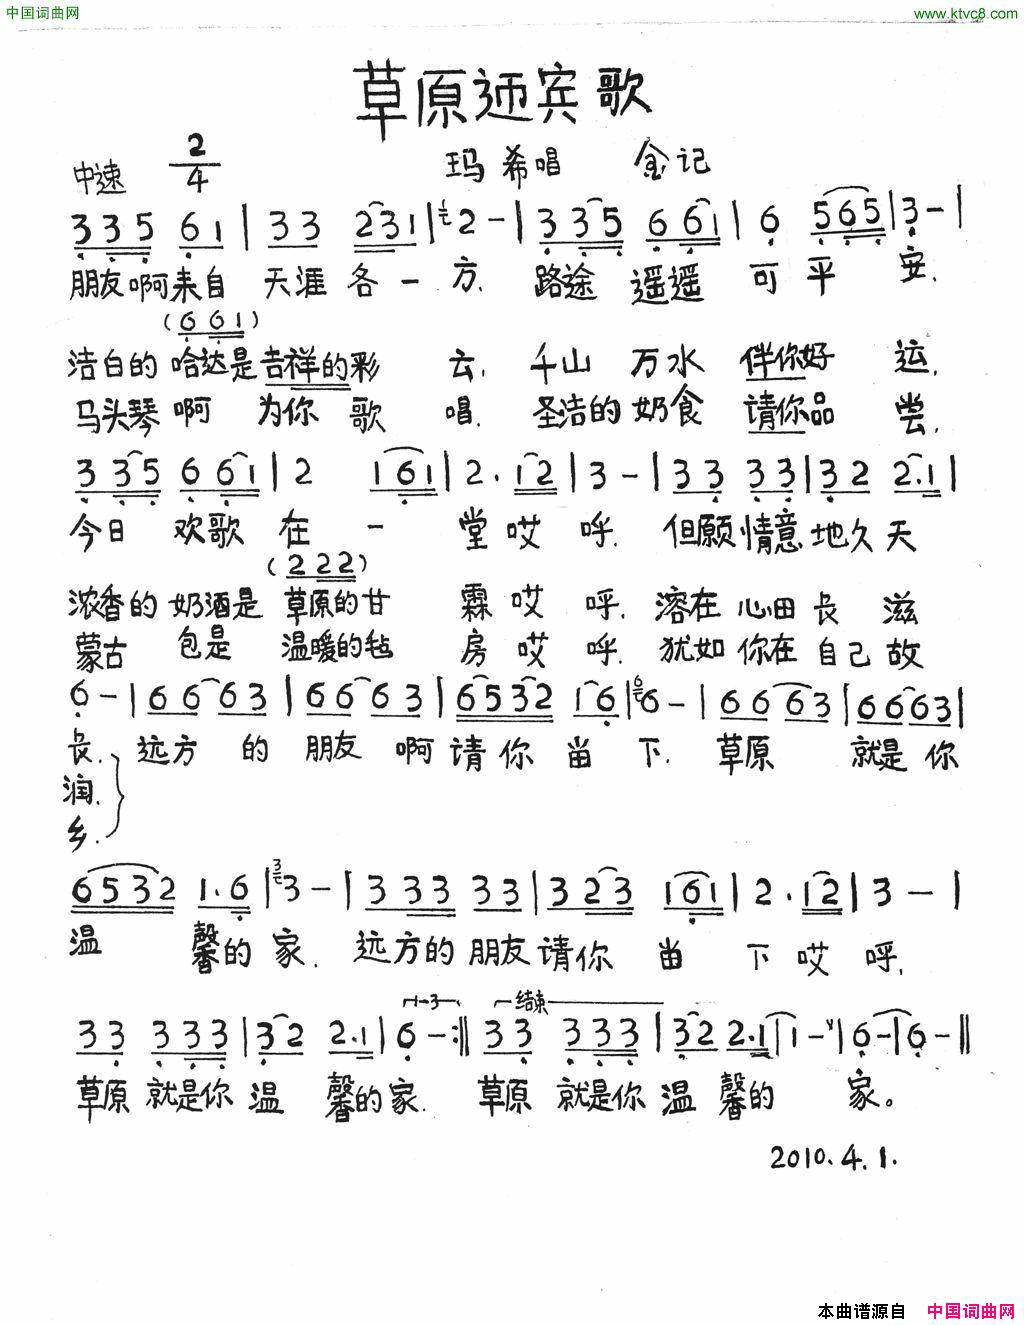 中国词曲网
www.ktvc8.com
草原迊宾歌
中速 2/4 玛希唱 金记
3 3 5 6 1 | 3 3 2 3 1 | 2 - | 3 3 5 6 6 1 | 6 5 6 5 | 3 - |
朋友啊来自 天涯各一方. 路途遥遥可平安.
(6 6 1)
洁白的哈达是吉祥的彩云, 千山万水伴你好运,
马头琴啊为你歌唱. 圣洁的奶食请你品尝,
3 3 5 6 6 1 | 2 1 6 1 | 2 . 1 2 | 3 - | 3 3 3 3 | 3 2 2 . 1 |
今日欢歌在一堂哎呼. 但愿情意地久天
(2 2 2)
浓香的奶酒是草原的甘霖哎呼. 溶在心田长滋
蒙古包是温暖的毡房哎呼. 犹如你在自己故
6 - | 6 6 6 6 3 | 6 6 6 6 3 | 6 5 3 2 1 6 | 6 - | 6 6 6 3 | 6 6 6 6 3 |
长. 远方的朋友啊请你留下. 草原就是你
润.
乡.
6 5 3 2 1 . 6 | 3 - | 3 3 3 3 3 | 3 2 3 1 6 1 | 2 . 1 2 | 3 - |
温馨的家. 远方的朋友请你留下哎呼,
1-3 结束
3 3 3 3 3 | 3 2 2 . 1 | 6 - :‖ 3 3 3 3 3 | 3 2 2 . 1 | 1 - | 6 - | 6 - ‖
草原就是你温馨的家. 草原就是你温馨的家。
2010.4.1.
本曲谱源自 中国词曲网